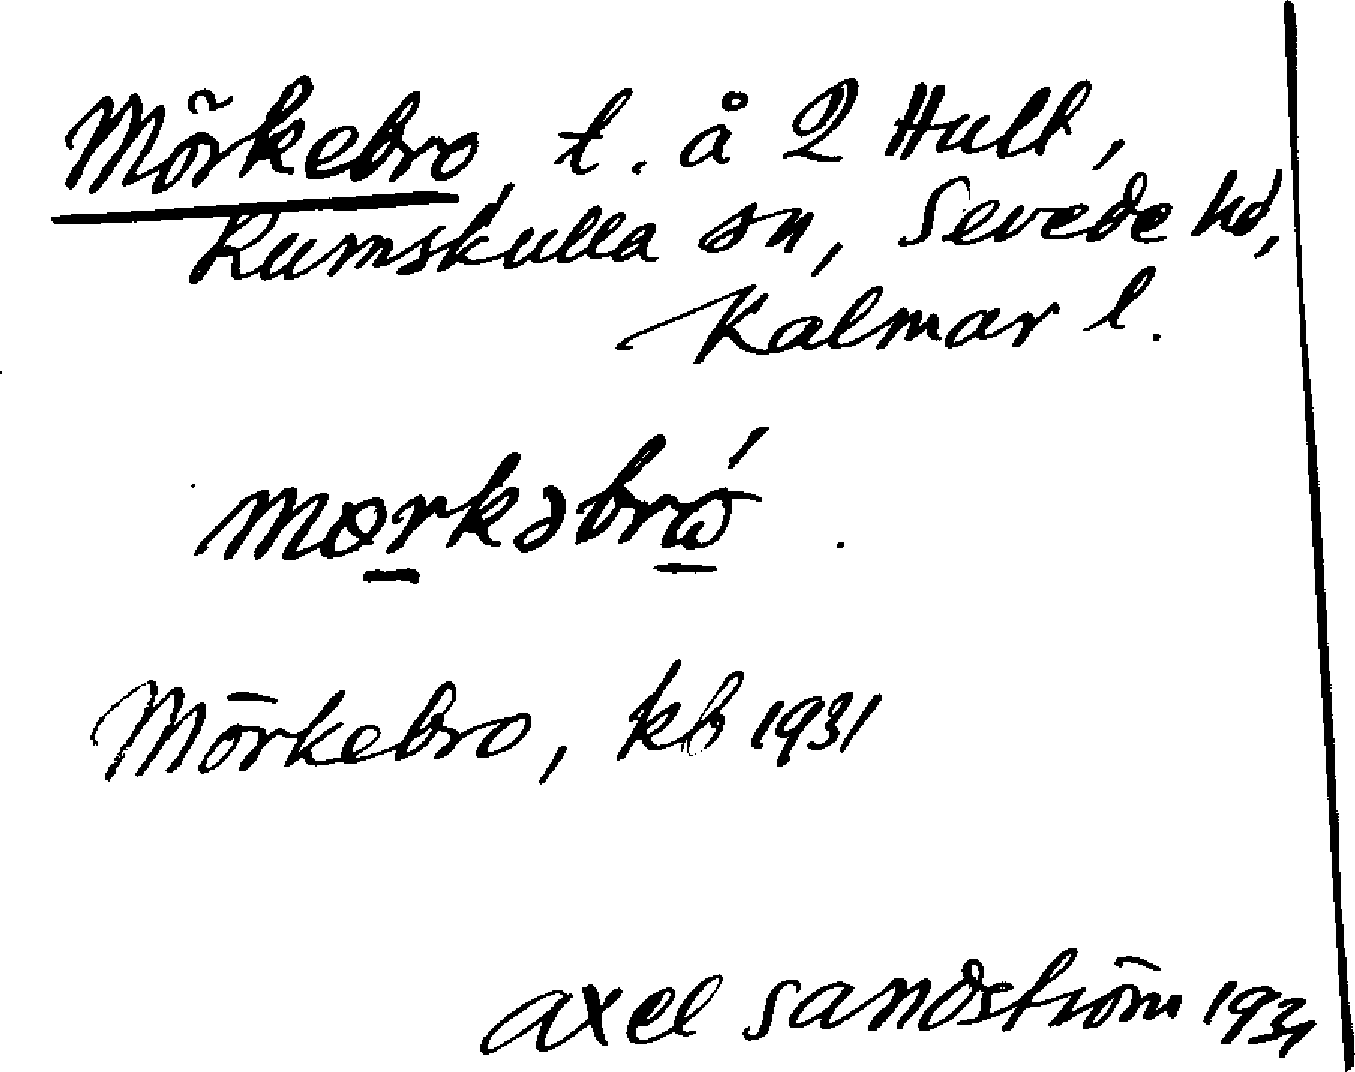 Mörkebro, t. å 2 Hult,
Rumskulla sn, Sevede hd,
Kalmar l.
Mörkebro, kb 1931
Axel Sandström 1931